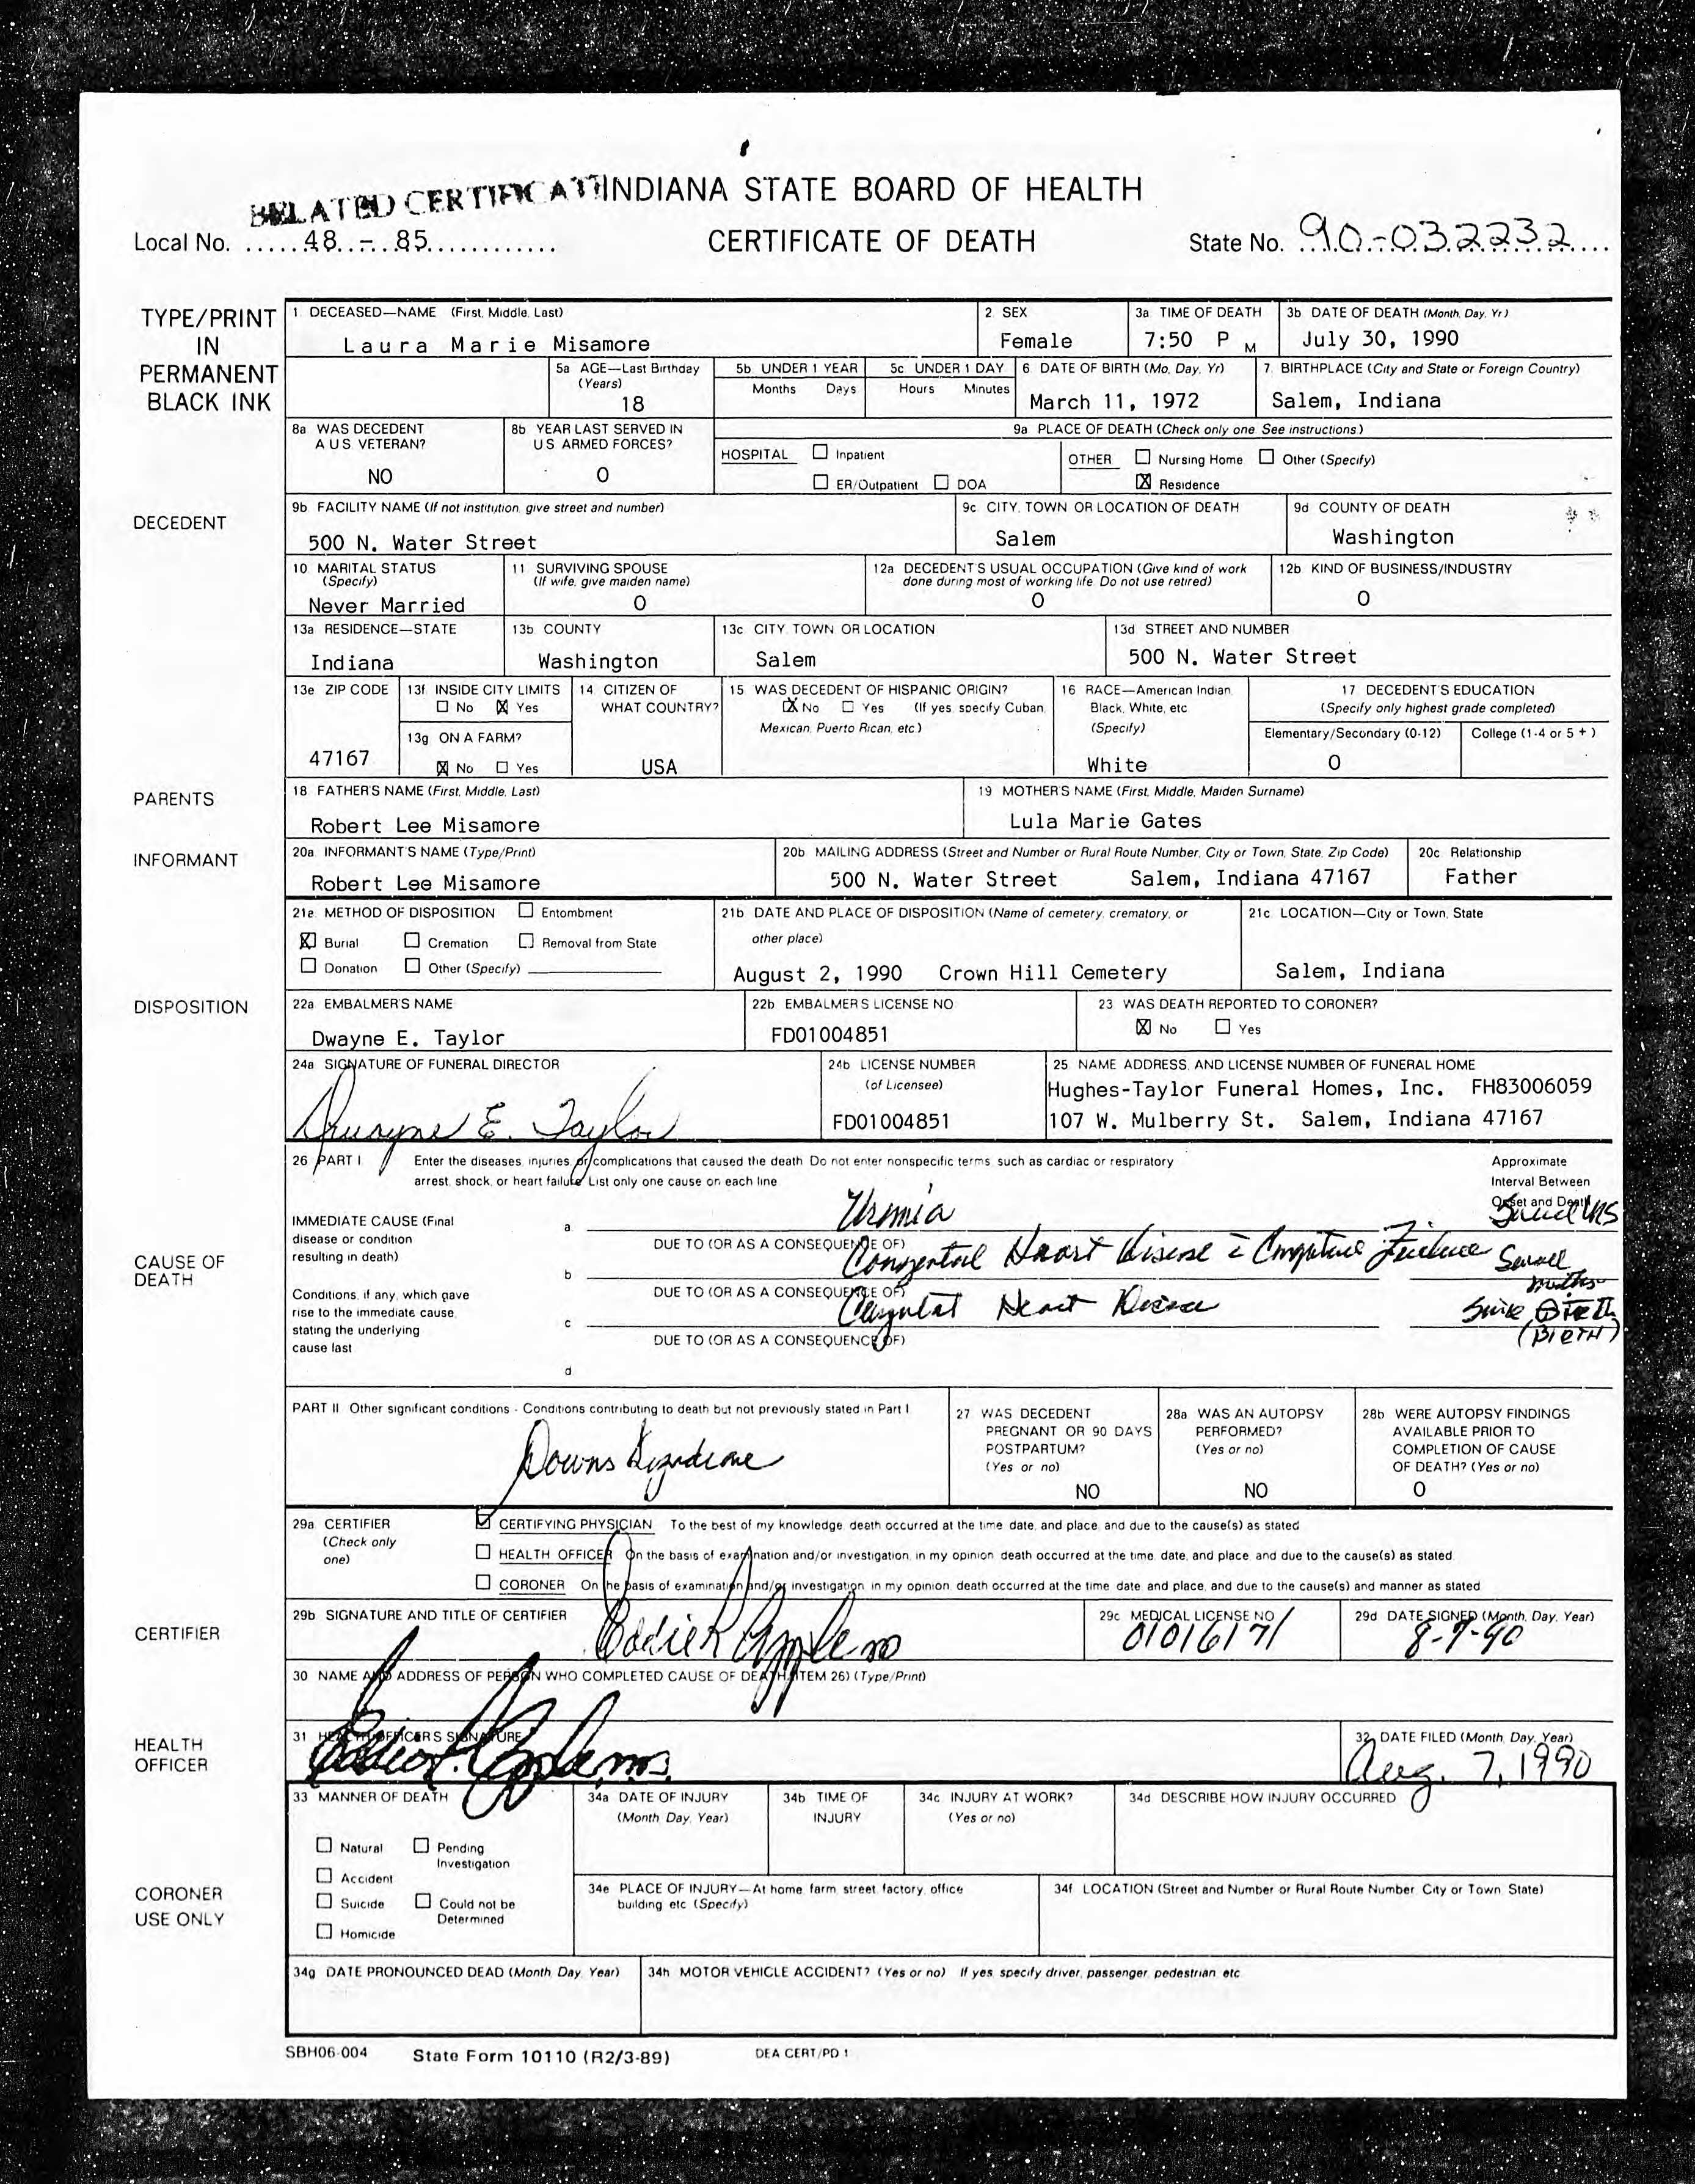 BELATED CERTIFICATE
INDIANA STATE BOARD OF HEALTH
Local No. .....48..-..85............
CERTIFICATE OF DEATH
State No. 90-032232
TYPE/PRINT
IN
PERMANENT
BLACK INK
1 DECEASED—NAME (First, Middle, Last)
Laura Marie Misamore
2 SEX
Female
3a TIME OF DEATH
7:50 P M
3b DATE OF DEATH (Month, Day, Yr)
July 30, 1990
5a AGE—Last Birthday
(Years)
18
5b UNDER 1 YEAR
Months Days
5c UNDER 1 DAY
Hours Minutes
6 DATE OF BIRTH (Mo, Day, Yr)
March 11, 1972
7. BIRTHPLACE (City and State or Foreign Country)
Salem, Indiana
DECEDENT
8a WAS DECEDENT
A U S VETERAN?
NO
8b YEAR LAST SERVED IN
U S ARMED FORCES?
0
9a PLACE OF DEATH (Check only one. See instructions.)
HOSPITAL ☐ Inpatient
☐ ER/Outpatient ☐ DOA
OTHER ☐ Nursing Home ☐ Other (Specify)
☒ Residence
9b FACILITY NAME (If not institution, give street and number)
500 N. Water Street
9c CITY, TOWN OR LOCATION OF DEATH
Salem
9d COUNTY OF DEATH
Washington
10 MARITAL STATUS
(Specify)
Never Married
11 SURVIVING SPOUSE
(If wife, give maiden name)
0
12a DECEDENT'S USUAL OCCUPATION (Give kind of work
done during most of working life. Do not use retired)
0
12b KIND OF BUSINESS/INDUSTRY
0
13a RESIDENCE—STATE
Indiana
13b COUNTY
Washington
13c CITY, TOWN OR LOCATION
Salem
13d STREET AND NUMBER
500 N. Water Street
13e ZIP CODE
47167
13f INSIDE CITY LIMITS
☐ No ☒ Yes
13g ON A FARM?
☒ No ☐ Yes
14 CITIZEN OF
WHAT COUNTRY?
USA
15 WAS DECEDENT OF HISPANIC ORIGIN?
☒ No ☐ Yes (If yes, specify Cuban,
Mexican, Puerto Rican, etc.)
16 RACE—American Indian,
Black, White, etc
(Specify)
White
17 DECEDENT'S EDUCATION
(Specify only highest grade completed)
Elementary/Secondary (0-12)
0
College (1-4 or 5 + )
PARENTS
18 FATHER'S NAME (First, Middle, Last)
Robert Lee Misamore
19 MOTHER'S NAME (First, Middle, Maiden Surname)
Lula Marie Gates
INFORMANT
20a INFORMANT'S NAME (Type/Print)
Robert Lee Misamore
20b MAILING ADDRESS (Street and Number or Rural Route Number, City or Town, State, Zip Code)
500 N. Water Street Salem, Indiana 47167
20c Relationship
Father
DISPOSITION
21a METHOD OF DISPOSITION ☐ Entombment
☒ Burial ☐ Cremation ☐ Removal from State
☐ Donation ☐ Other (Specify)
21b DATE AND PLACE OF DISPOSITION (Name of cemetery, crematory, or
other place)
August 2, 1990 Crown Hill Cemetery
21c LOCATION—City or Town, State
Salem, Indiana
22a EMBALMER'S NAME
Dwayne E. Taylor
22b EMBALMER'S LICENSE NO
FD01004851
23 WAS DEATH REPORTED TO CORONER?
☒ No ☐ Yes
24a SIGNATURE OF FUNERAL DIRECTOR
Dwayne E. Taylor
24b LICENSE NUMBER
(of Licensee)
FD01004851
25 NAME ADDRESS, AND LICENSE NUMBER OF FUNERAL HOME
Hughes-Taylor Funeral Homes, Inc. FH83006059
107 W. Mulberry St. Salem, Indiana 47167
CAUSE OF
DEATH
26 PART I Enter the diseases, injuries, or complications that caused the death. Do not enter nonspecific terms such as cardiac or respiratory
arrest, shock, or heart failure. List only one cause on each line
Approximate
Interval Between
Onset and Death
IMMEDIATE CAUSE (Final
disease or condition
resulting in death)
a Urmia
DUE TO (OR AS A CONSEQUENCE OF)
b Congenital Heart Disease
DUE TO (OR AS A CONSEQUENCE OF)
c Heart
(BIRTH)
DUE TO (OR AS A CONSEQUENCE OF)
d
Conditions, if any, which gave
rise to the immediate cause,
stating the underlying
cause last
PART II Other significant conditions - Conditions contributing to death but not previously stated in Part I
Downs Syndrome
27 WAS DECEDENT
PREGNANT OR 90 DAYS
POSTPARTUM?
(Yes or no)
NO
28a WAS AN AUTOPSY
PERFORMED?
(Yes or no)
NO
28b WERE AUTOPSY FINDINGS
AVAILABLE PRIOR TO
COMPLETION OF CAUSE
OF DEATH? (Yes or no)
0
CERTIFIER
29a CERTIFIER
(Check only
one)
☑ CERTIFYING PHYSICIAN To the best of my knowledge, death occurred at the time, date, and place, and due to the cause(s) as stated
☐ HEALTH OFFICER On the basis of examination and/or investigation, in my opinion, death occurred at the time, date, and place and due to the cause(s) as stated
☐ CORONER On the basis of examination and/or investigation in my opinion death occurred at the time date and place, and due to the cause(s) and manner as stated
29b SIGNATURE AND TITLE OF CERTIFIER
29c MEDICAL LICENSE NO
01016171
29d DATE SIGNED (Month, Day, Year)
8-7-90
30 NAME AND ADDRESS OF PERSON WHO COMPLETED CAUSE OF DEATH (ITEM 26) (Type/Print)
HEALTH
OFFICER
31 HEALTH OFFICER'S SIGNATURE
32 DATE FILED (Month, Day, Year)
Aug. 7, 1990
CORONER
USE ONLY
33 MANNER OF DEATH
☐ Natural ☐ Pending
Investigation
☐ Accident
☐ Suicide ☐ Could not be
Determined
☐ Homicide
34a DATE OF INJURY
(Month, Day, Year)
34b TIME OF
INJURY
34c INJURY AT WORK?
(Yes or no)
34d DESCRIBE HOW INJURY OCCURRED
34e PLACE OF INJURY—At home, farm, street, factory, office
building, etc (Specify)
34f LOCATION (Street and Number or Rural Route Number, City or Town, State)
34g DATE PRONOUNCED DEAD (Month, Day, Year)
34h MOTOR VEHICLE ACCIDENT? (Yes or no) If yes, specify driver, passenger, pedestrian, etc
SBH06-004 State Form 10110 (R2/3-89) DEA CERT/PD 1